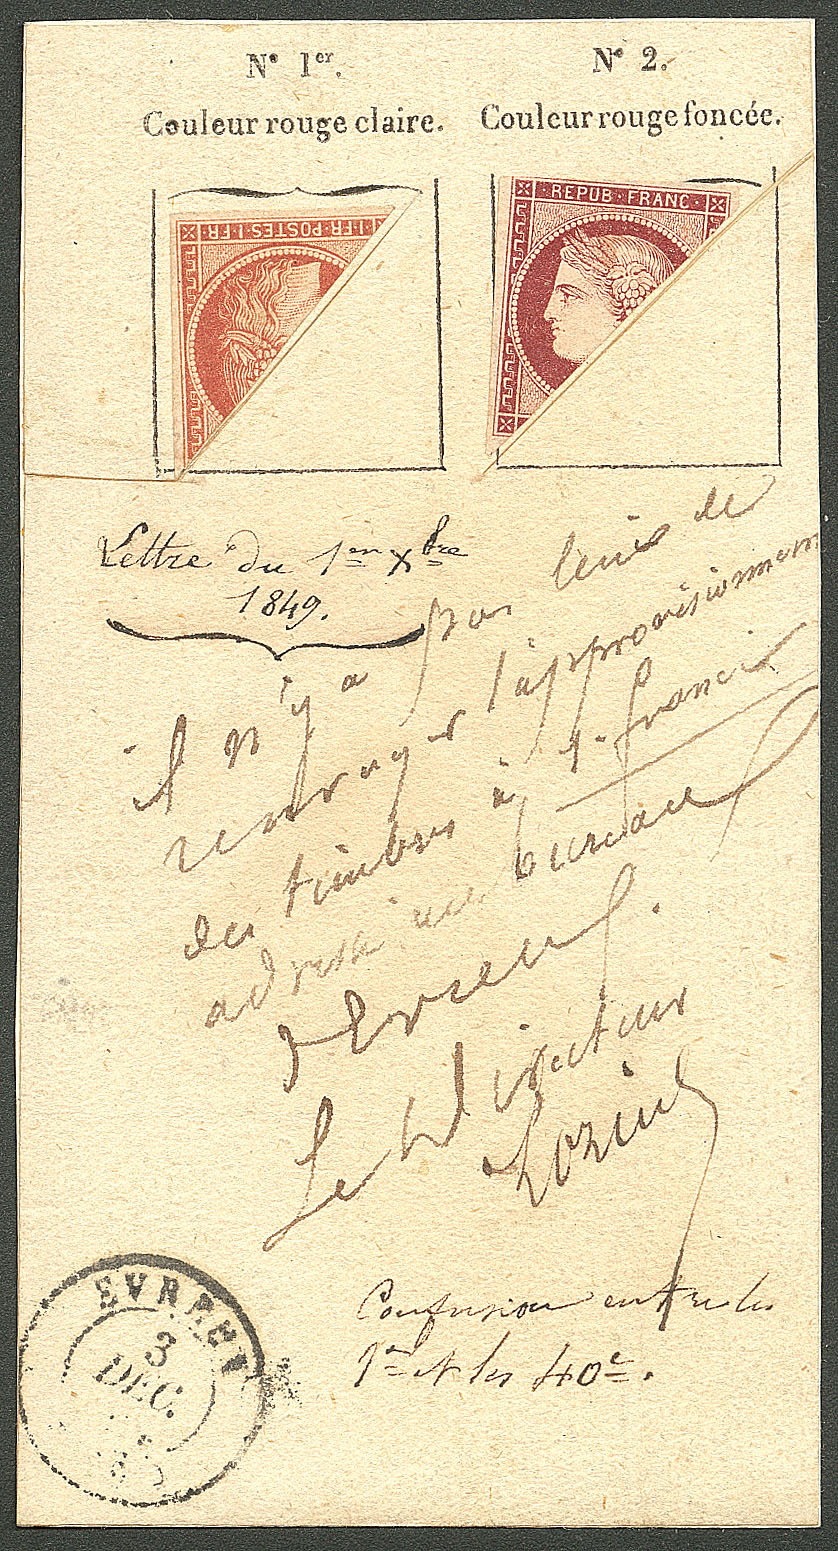 N° 1er.
N° 2.
Couleur rouge claire.
Couleur rouge foncée.
1·FR·POSTES·1·FR
REPUB·FRANC
Lettre du 1er Xbre
1849.
il n'y a pas lieu de
l'approvisionnement
des timbres à 1. franc
adressé au bureau
Le Directeur
Confusion entre les
1er et les 40c.
EVRECY
3
DEC.